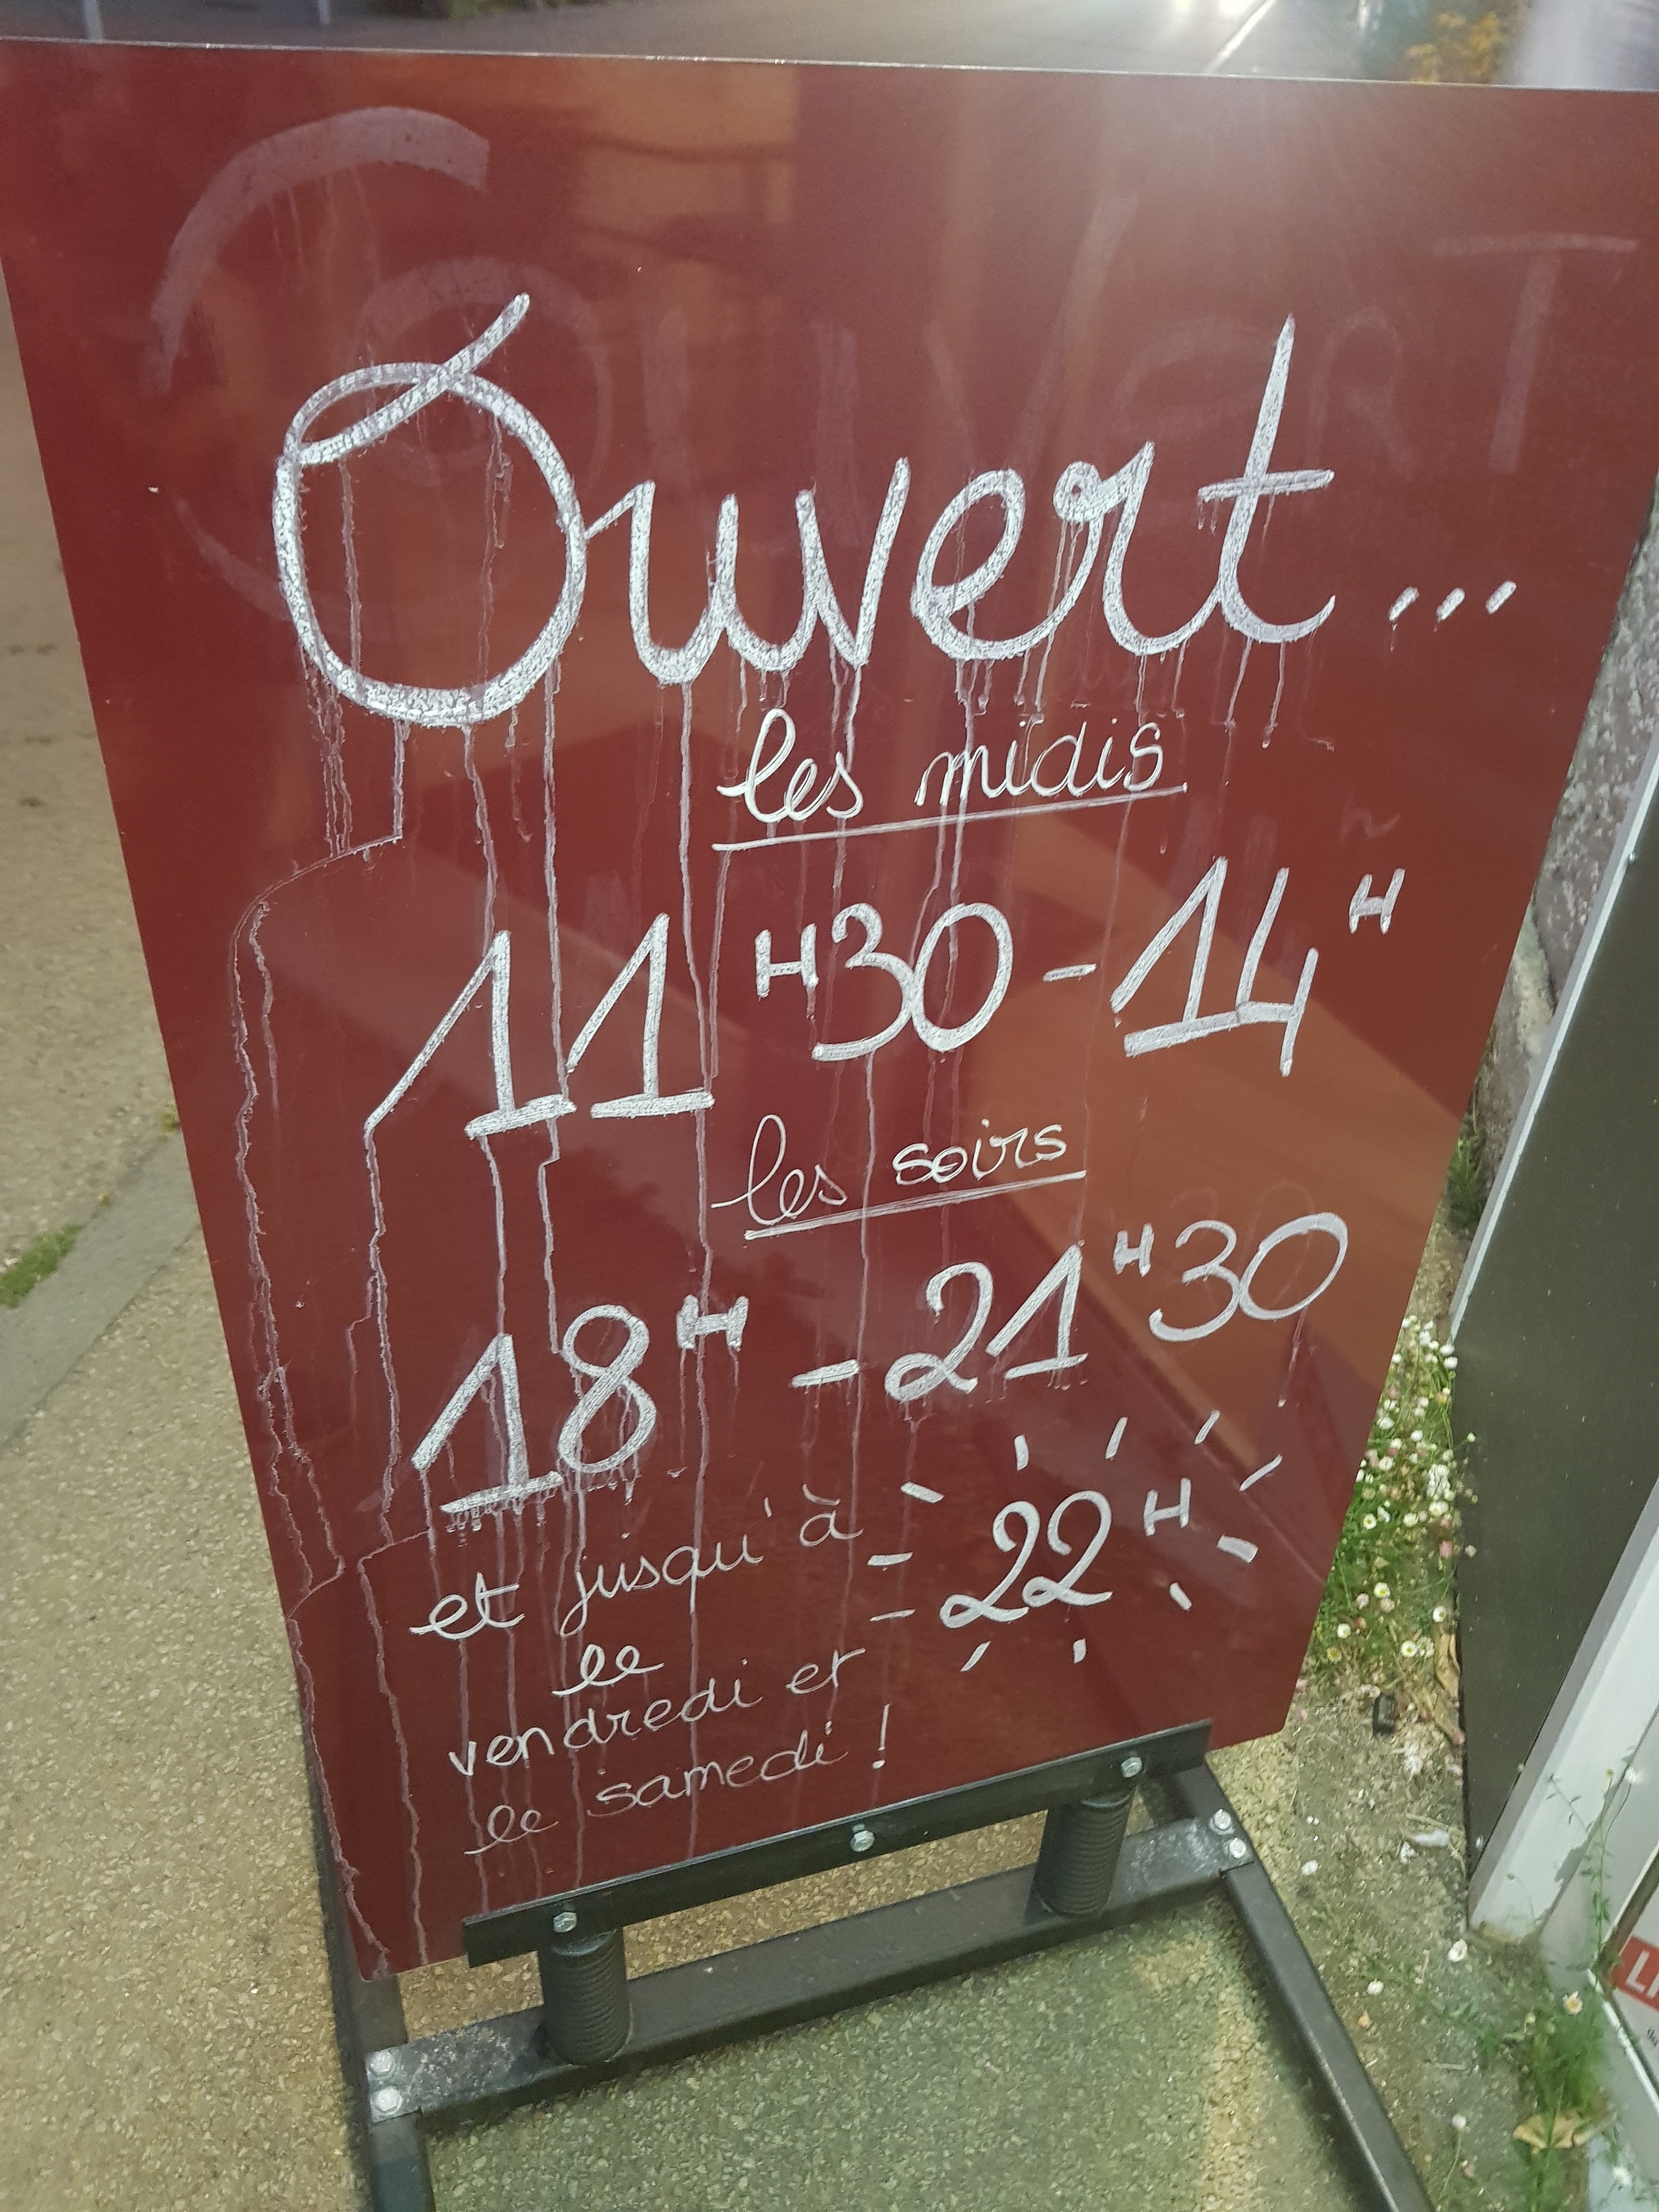 Ouvert...
les midis
11H30-14H
les soirs
18H-21H30
et jusqu'à 22H
le
vendredi et
le samedi !
OUVERT